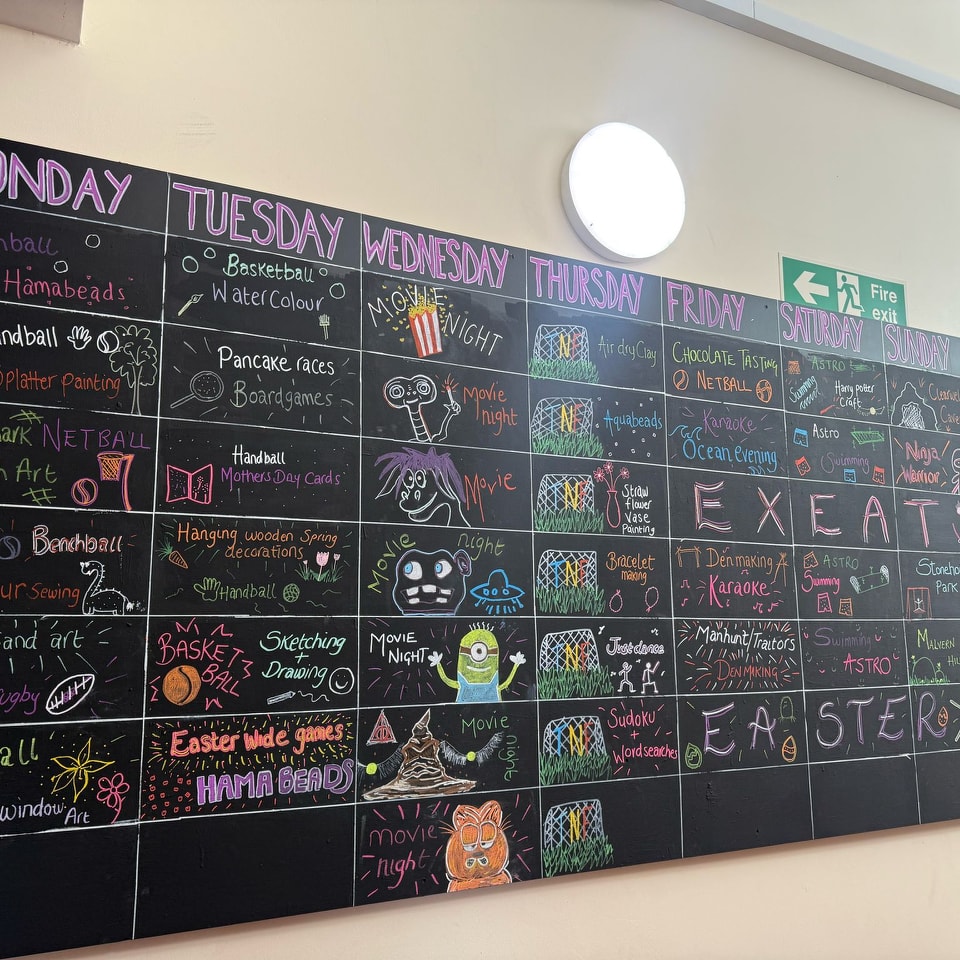 ONDAY TUESDAY WEDNESDAY THURSDAY FRIDAY SATURDAY SUNDAY
Fire
exit
Hamabeads
Basketball
Watercolour
MOVIE
NIGHT
TNF
Air dry Clay
CHOCOLATE TASTING
NETBALL
ASTRO
Swimming
Harry Potter
Craft
ndball
platter painting
Pancake races
Boardgames
Movie
night
TNF
Aquabeads
Karaoke
Ocean evening
Astro
Swimming
Ninja
Warrior
NETBALL
Art
Handball
Mothers Day Cards
Movie
TNF
Straw
flower
Vase
Painting
EXEAT
Benchball
ur sewing
Hanging wooden Spring
decorations
Handball
Movie night
TNF
Bracelet
making
Den making
Karaoke
ASTRO
Swimming
Stoneho
Park
and art
ugby
BASKET
BALL
Sketching
+
Drawing
MOVIE
NIGHT
TNF
Just dance
Manhunt/Traitors
DEN MAKING
Swimming
ASTRO
MALVERN
HIL
all
window Art
Easter Wide games
HAMA BEADS
Movie
night
TNF
Sudoku
+
Wordsearches
EASTER
movie
night
TNF